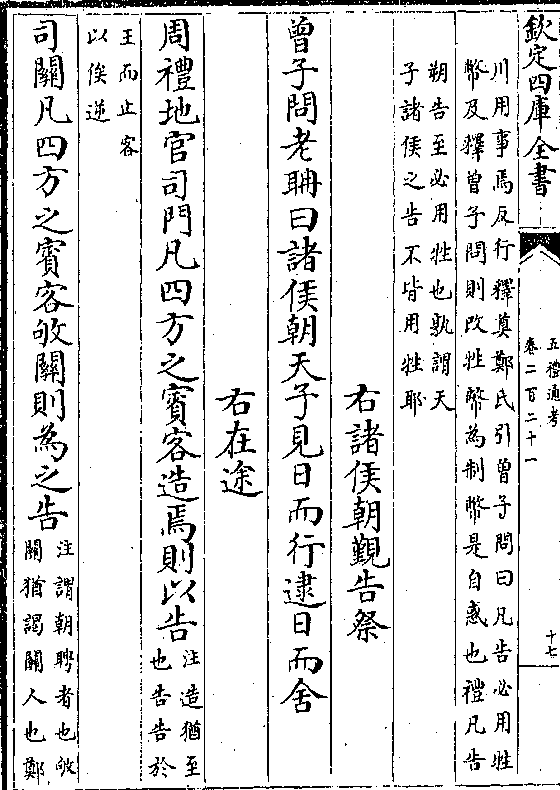 欽定四庫全書
五禮通考
卷二百二十一
十七
川用事焉反行釋奠鄭氏引曾子問曰凡告必用牲
幣及釋曾子問則改牲幣為制幣是自惑也禮凡告
朔告至必用牲也孰謂天
子諸侯之告不皆用牲耶
右諸侯朝覲告祭
曾子問老聃曰諸侯朝天子見日而行逮日而舍
右在途
周禮地官司門凡四方之賓客造焉則以告
注造猶至
也告告於
王而止客
以俟逆
司關凡四方之賓客敂關則為之告
注謂朝聘者也敂
關猶謁關人也鄭